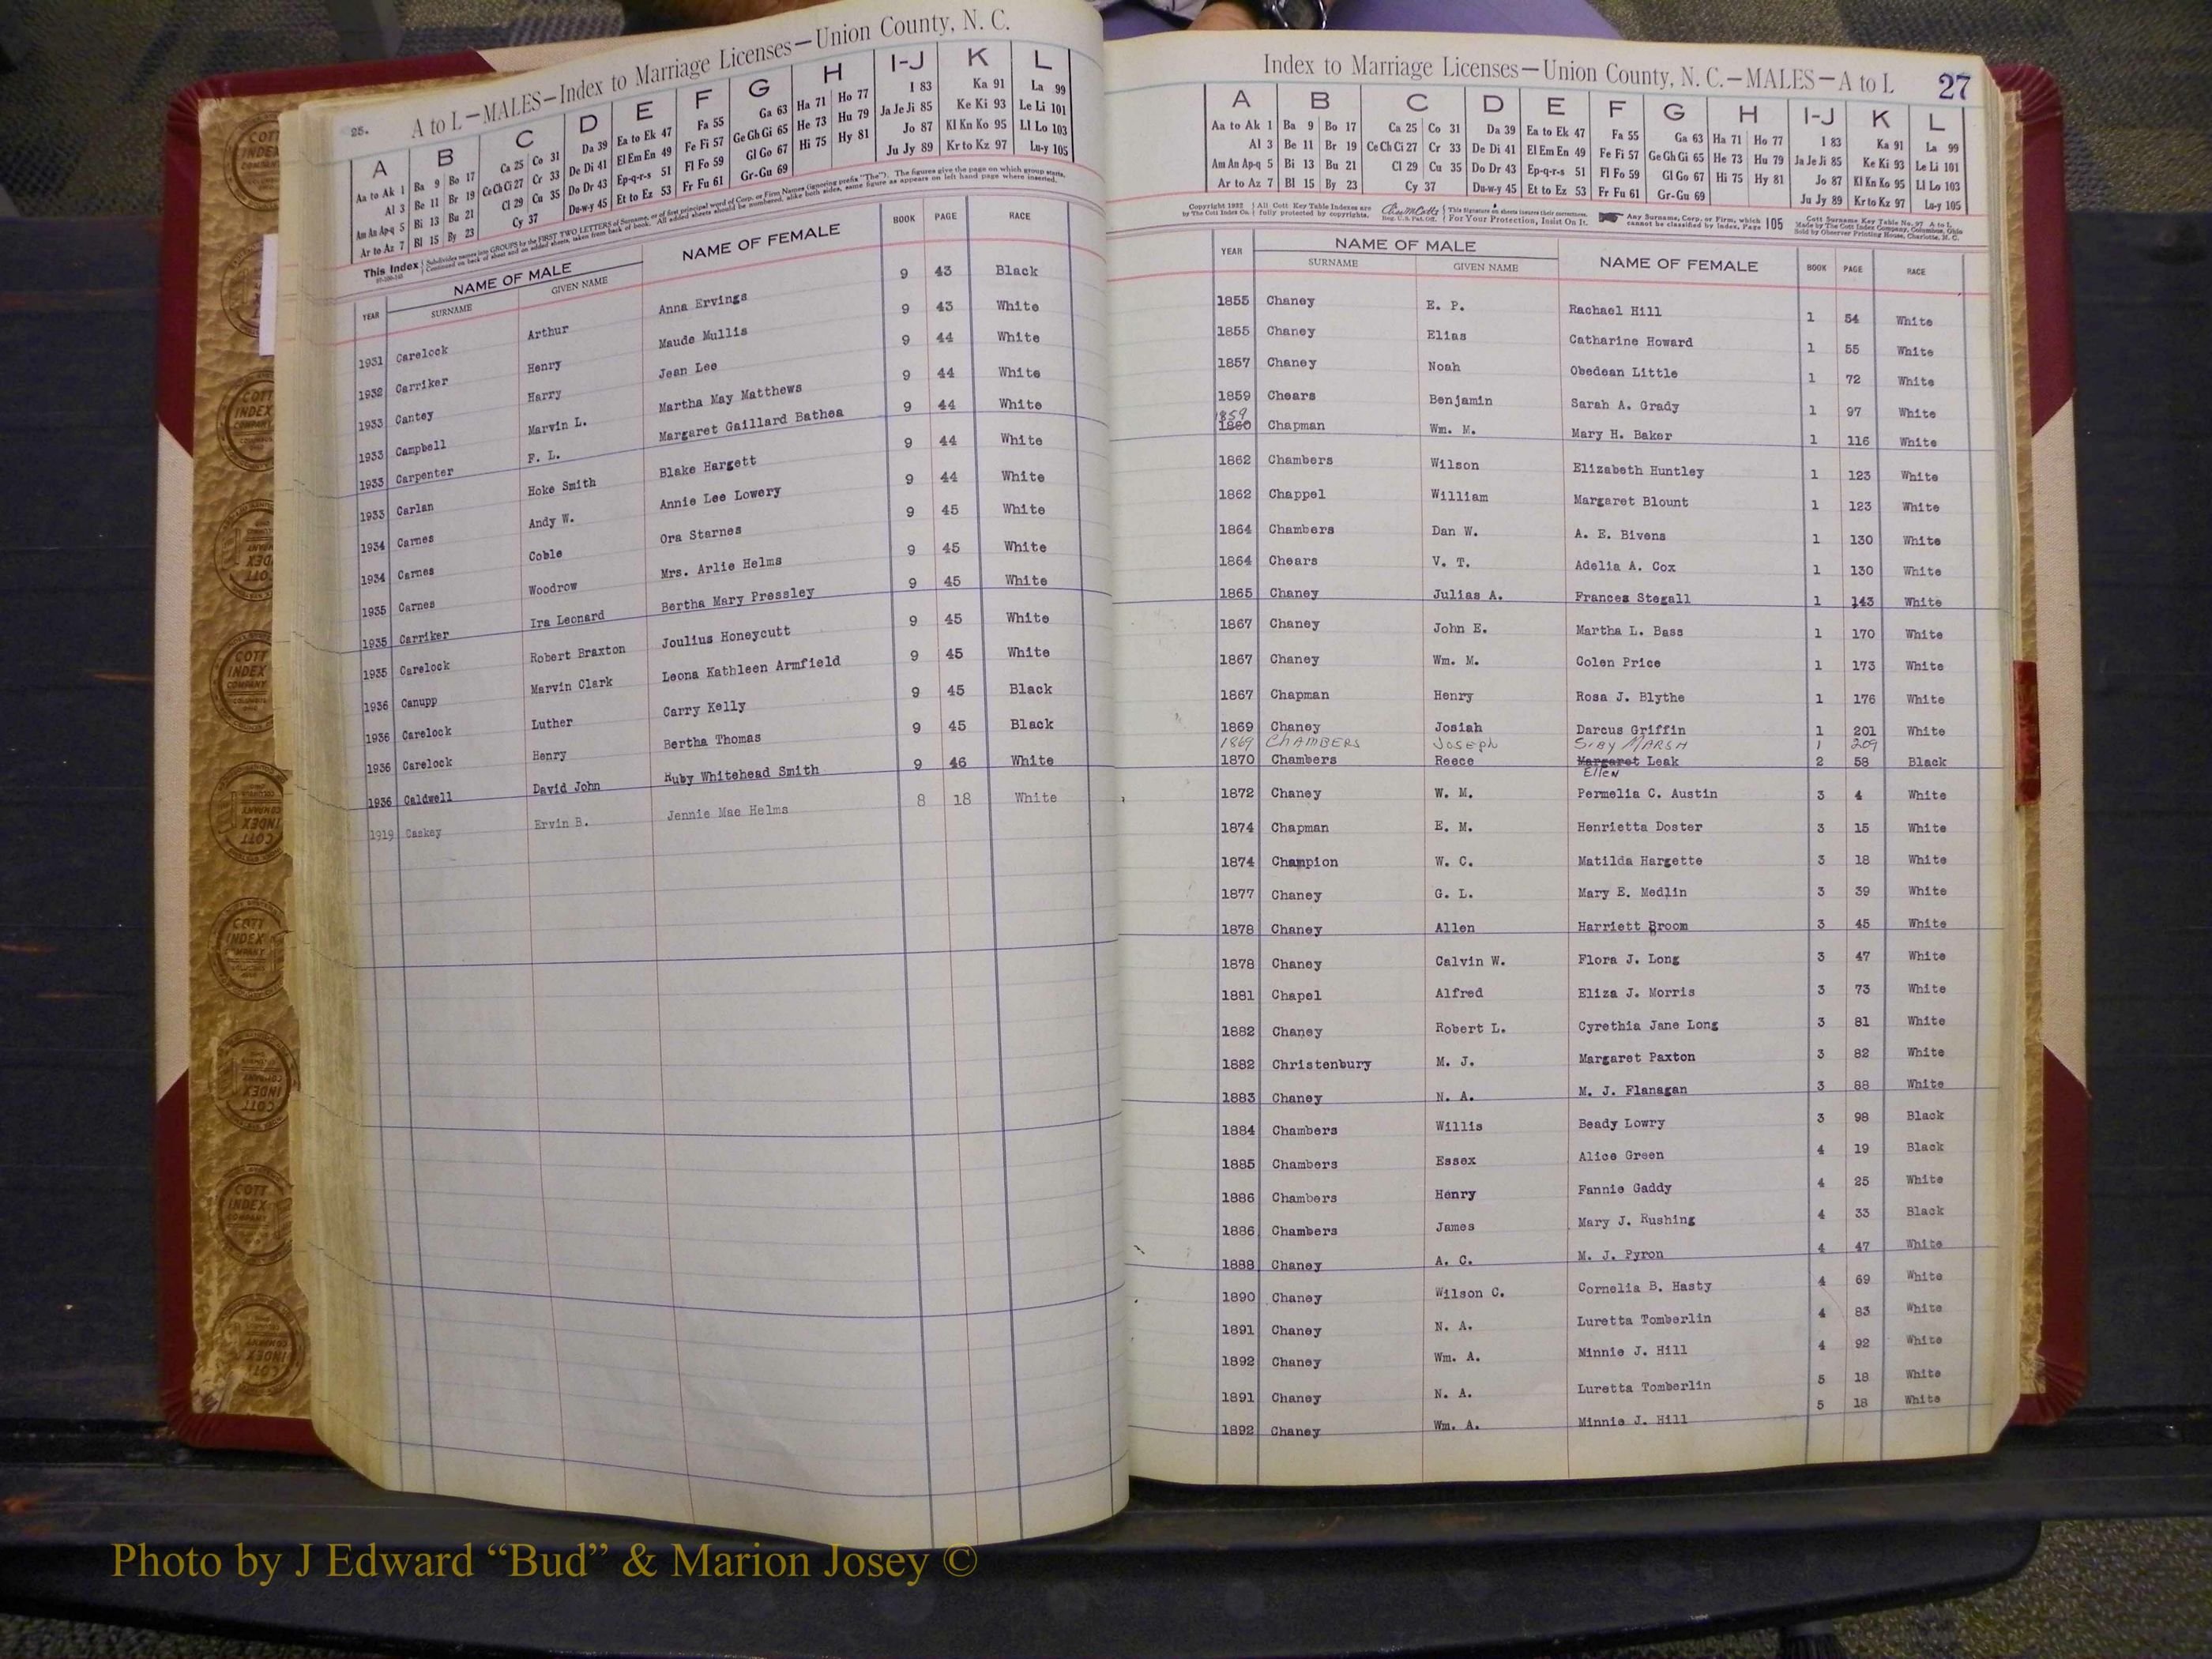 25. A to L—MALES—Index to Marriage Licenses—Union County, N. C.
A B C D E F G H I-J K L
Aa to Ak 1 Ba 9 Bo 17 Ca 25 Co 31 Da 39 Ea to Ek 47 Fa 55 Ga 63 Ha 71 Ho 77 I 83 Ka 91 La 99
Al 3 Be 11 Br 19 Ce Ch Ci 27 Cr 33 De Di 41 El Em En 49 Fe Fi 57 Ge Gh Gi 65 He 73 Hu 79 Ja Je Ji 85 Ke Ki 93 Le Li 101
Am An Ap-q 5 Bi 13 Bu 21 Cl 29 Cu 35 Do Dr 43 Ep-q-r-s 51 Fl Fo 59 Gl Go 67 Hi 75 Hy 81 Jo 87 Kl Kn Ko 95 Ll Lo 103
Ar to Az 7 Bl 15 By 23 Cy 37 Du-w-y 45 Et to Ez 53 Fr Fu 61 Gr-Gu 69 Ju Jy 89 Kr to Kz 97 Lu-y 105
This Index Subdivides names into GROUPS by the FIRST TWO LETTERS of Surname, or of first principal word of Corp. or Firm Names (ignoring prefix "The"). The figures give the page on which group starts.
Continued on back of sheet and on added sheets, taken from back of book. All added sheets should be numbered, alike both sides, same figure as appears on left hand page where inserted.
YEAR NAME OF MALE NAME OF FEMALE BOOK PAGE RACE
SURNAME GIVEN NAME
1931 Carelock Arthur Anna Ervings 9 43 Black
1932 Carriker Henry Maude Mullis 9 43 White
1933 Cantey Harry Jean Lee 9 44 White
1933 Campbell Marvin L. Martha May Matthews 9 44 White
1933 Carpenter F. L. Margaret Gaillard Bathea 9 44 White
1933 Carlan Hoke Smith Blake Hargett 9 44 White
1934 Carnes Andy W. Annie Lee Lowery 9 44 White
1934 Carnes Coble Ora Starnes 9 45 White
1935 Carnes Woodrow Mrs. Arlie Helms 9 45 White
1935 Carriker Ira Leonard Bertha Mary Pressley 9 45 White
1935 Carelock Robert Braxton Joulius Honeycutt 9 45 White
1936 Canupp Marvin Clark Leona Kathleen Armfield 9 45 White
1936 Carelock Luther Carry Kelly 9 45 Black
1936 Carelock Henry Bertha Thomas 9 45 Black
1936 Caldwell David John Ruby Whitehead Smith 9 46 White
1919 Caskey Ervin B. Jennie Mae Helms 8 18 White
Index to Marriage Licenses—Union County, N. C.—MALES—A to L 27
A B C D E F G H I-J K L
Aa to Ak 1 Ba 9 Bo 17 Ca 25 Co 31 Da 39 Ea to Ek 47 Fa 55 Ga 63 Ha 71 Ho 77 I 83 Ka 91 La 99
Al 3 Be 11 Br 19 Ce Ch Ci 27 Cr 33 De Di 41 El Em En 49 Fe Fi 57 Ge Gh Gi 65 He 73 Hu 79 Ja Je Ji 85 Ke Ki 93 Le Li 101
Am An Ap-q 5 Bi 13 Bu 21 Cl 29 Cu 35 Do Dr 43 Ep-q-r-s 51 Fl Fo 59 Gl Go 67 Hi 75 Hy 81 Jo 87 Kl Kn Ko 95 Ll Lo 103
Ar to Az 7 Bl 15 By 23 Cy 37 Du-w-y 45 Et to Ez 53 Fr Fu 61 Gr-Gu 69 Ju Jy 89 Kr to Kz 97 Lu-y 105
Copyright 1932 All Cott Key Table Indexes are This Signature on sheets insures their correctness. Any Surname, Corp. or Firm, which 105 Cott Surname Key Table No. 97 A to L
by The Cott Index Co. fully protected by copyrights. Reg. U.S. Pat. Off. For Your Protection, Insist On It. cannot be classified by Index, Page Made by The Cott Index Company, Columbus, Ohio
Sold by Observer Printing House, Charlotte, N. C.
YEAR NAME OF MALE NAME OF FEMALE BOOK PAGE RACE
SURNAME GIVEN NAME
1855 Chaney E. P. Rachael Hill 1 54 White
1855 Chaney Elias Catharine Howard 1 55 White
1857 Chaney Noah Obedean Little 1 72 White
1859 Chears Benjamin Sarah A. Grady 1 97 White
1859
1860 Chapman Wm. M. Mary H. Baker 1 116 White
1862 Chambers Wilson Elizabeth Huntley 1 123 White
1862 Chappel William Margaret Blount 1 123 White
1864 Chambers Dan W. A. E. Bivens 1 130 White
1864 Chears V. T. Adelia A. Cox 1 130 White
1865 Chaney Julias A. Frances Stegall 1 143 White
1867 Chaney John E. Martha L. Bass 1 170 White
1867 Chaney Wm. M. Colen Price 1 173 White
1867 Chapman Henry Rosa J. Blythe 1 176 White
1869 Chaney Josiah Darcus Griffin 1 201 White
1869 CHAMBERS JOSEPH SIBY MARSH 1 209
1870 Chambers Reece Margaret Leak 2 58 Black
Ellen
1872 Chaney W. M. Permelia C. Austin 3 4 White
1874 Chapman E. M. Henrietta Doster 3 15 White
1874 Champion W. C. Matilda Hargette 3 18 White
1877 Chaney G. L. Mary E. Medlin 3 39 White
1878 Chaney Allen Harriett Broom 3 45 White
1878 Chaney Calvin W. Flora J. Long 3 47 White
1881 Chapel Alfred Eliza J. Morris 3 73 White
1882 Chaney Robert L. Cyrethia Jane Long 3 81 White
1882 Christenbury M. J. Margaret Paxton 3 82 White
1883 Chaney N. A. M. J. Flanagan 3 88 White
1884 Chambers Willis Beady Lowry 3 98 Black
1885 Chambers Essex Alice Green 4 19 Black
1886 Chambers Henry Fannie Gaddy 4 25 White
1886 Chambers James Mary J. Rushing 4 33 Black
1888 Chaney A. C. M. J. Pyron 4 47 White
1890 Chaney Wilson C. Cornelia B. Hasty 4 69 White
1891 Chaney N. A. Luretta Tomberlin 4 83 White
1892 Chaney Wm. A. Minnie J. Hill 4 92 White
1891 Chaney N. A. Luretta Tomberlin 5 18 White
1892 Chaney Wm. A. Minnie J. Hill 5 18 White
Photo by J Edward “Bud” & Marion Josey ©